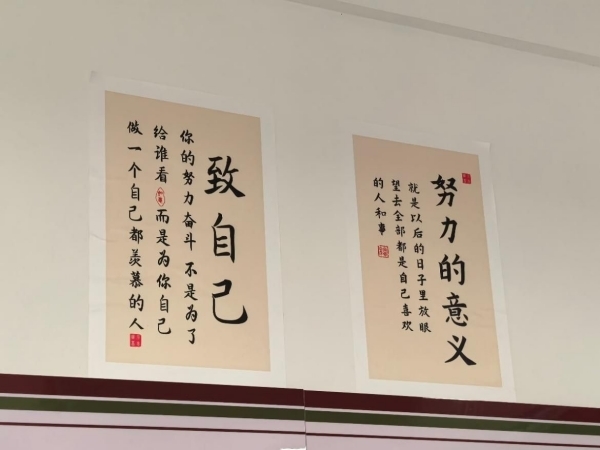 致自己
你的努力奋斗 不是为了
给谁看 而是为你自己
做一个自己都羡慕的人
努力的意义
就是以后的日子里放眼
望去全部都是自己喜欢
的人和事